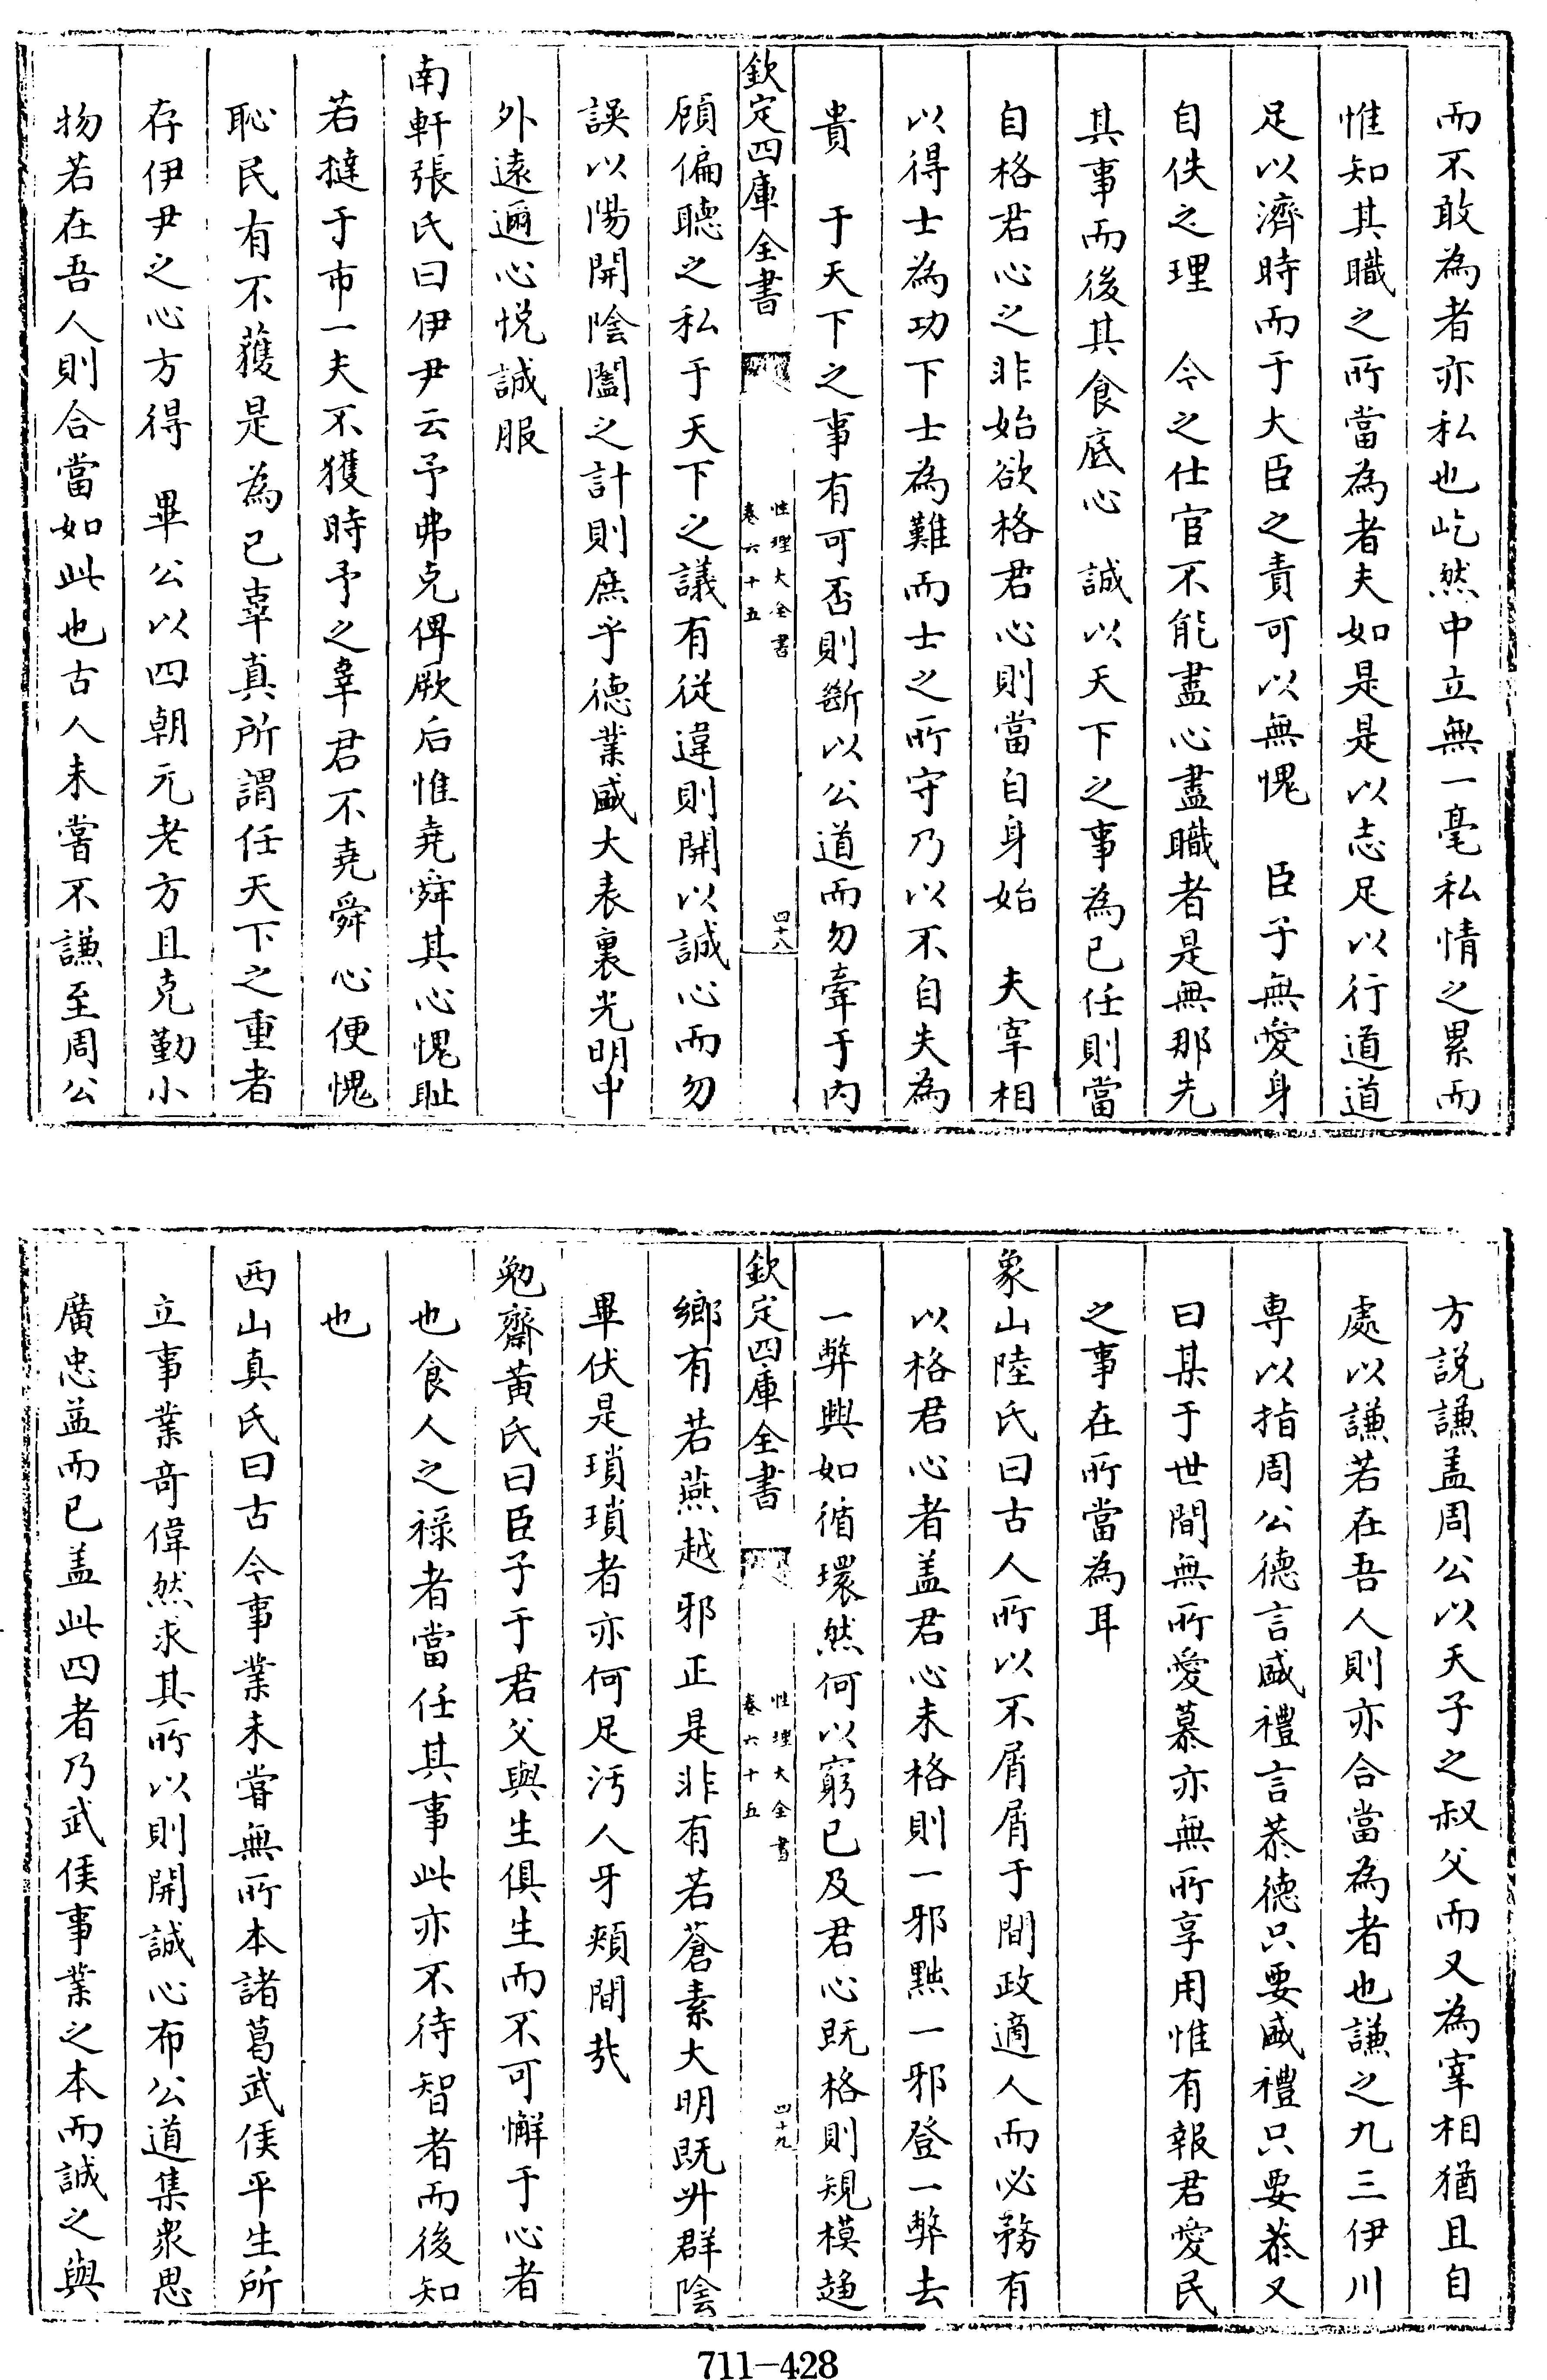 而不敢為者亦私也屹然中立無一毫私情之累而
惟知其職之所當為者夫如是是以志足以行道道
足以濟時而于大臣之責可以無愧　臣子無愛身
自佚之理　今之仕宦不能盡心盡職者是無那先
其事而後其食底心　誠以天下之事為已任則當
自格君心之非始欲格君心則當自身始　夫宰相
以得士為功下士為難而士之所守乃以不自失為
貴　于天下之事有可否則斷以公道而勿牽于内
欽定四庫全書
性理大全書
卷六十五
四十八
顧偏聽之私于天下之議有從違則開以誠心而勿
誤以陽開陰闔之計則庶乎德業盛大表裏光明中
外遠邇心悦誠服
南軒張氏曰伊尹云予弗克俾厥后惟堯舜其心愧耻
若撻于市一夫不獲時予之辜君不堯舜心便愧
恥民有不獲是為已辜真所謂任天下之重者
存伊尹之心方得　畢公以四朝元老方且克勤小
物若在吾人則合當如此也古人未嘗不謙至周公
方説謙盖周公以天子之叔父而又為宰相猶且自
處以謙若在吾人則亦合當為者也謙之九三伊川
専以指周公德言盛禮言恭德只要盛禮只要恭又
曰某于世間無所愛慕亦無所享用惟有報君愛民
之事在所當為耳
象山陸氏曰古人所以不屑屑于間政適人而必務有
以格君心者盖君心未格則一邪黜一邪登一弊去
一弊興如循環然何以窮已及君心既格則規模趨
欽定四庫全書
性理大全書
卷六十五
四十九
鄉有若燕越邪正是非有若蒼素大明既升群陰
畢伏是瑣瑣者亦何足汚人牙頰間哉
勉齋黃氏曰臣子于君父與生俱生而不可懈于心者
也食人之祿者當任其事此亦不待智者而後知
也
西山真氏曰古今事業未嘗無所本諸葛武侯平生所
立事業奇偉然求其所以則開誠心布公道集衆思
廣忠益而已盖此四者乃武侯事業之本而誠之與
711-428